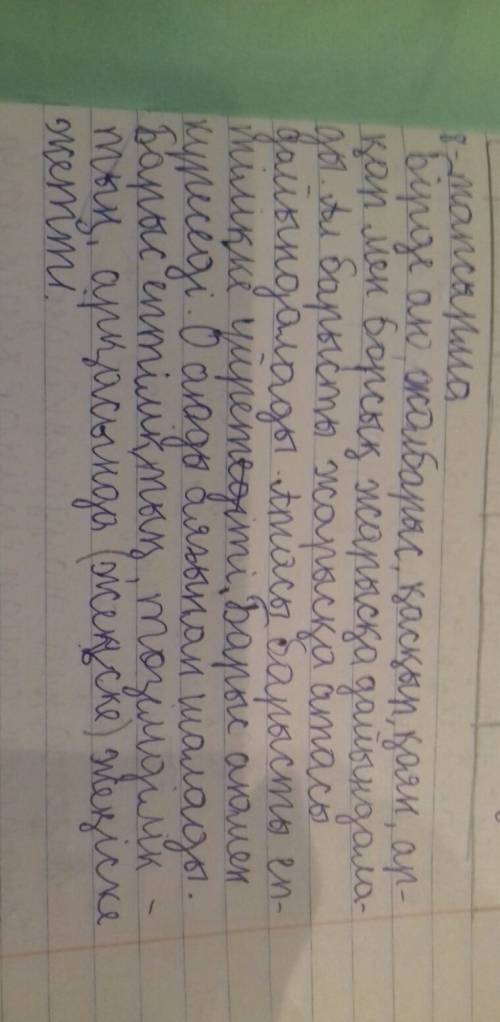 8-тапсырма
Бірде аю, жолбарыс, қасқыр, қоян, ар-
қар мен борсық жарысқа дайындала-
ды. Ал барысты жарысқа атасы
дайындалады. Атасы барысты еп-
тілікке үйретті, Барыс аюмен
күреседі. О аюды аяғынан шалады.
Барыс ептіліктің, төзімділік-
тың, арқасында (жеңіске) жеңіске
жетті.